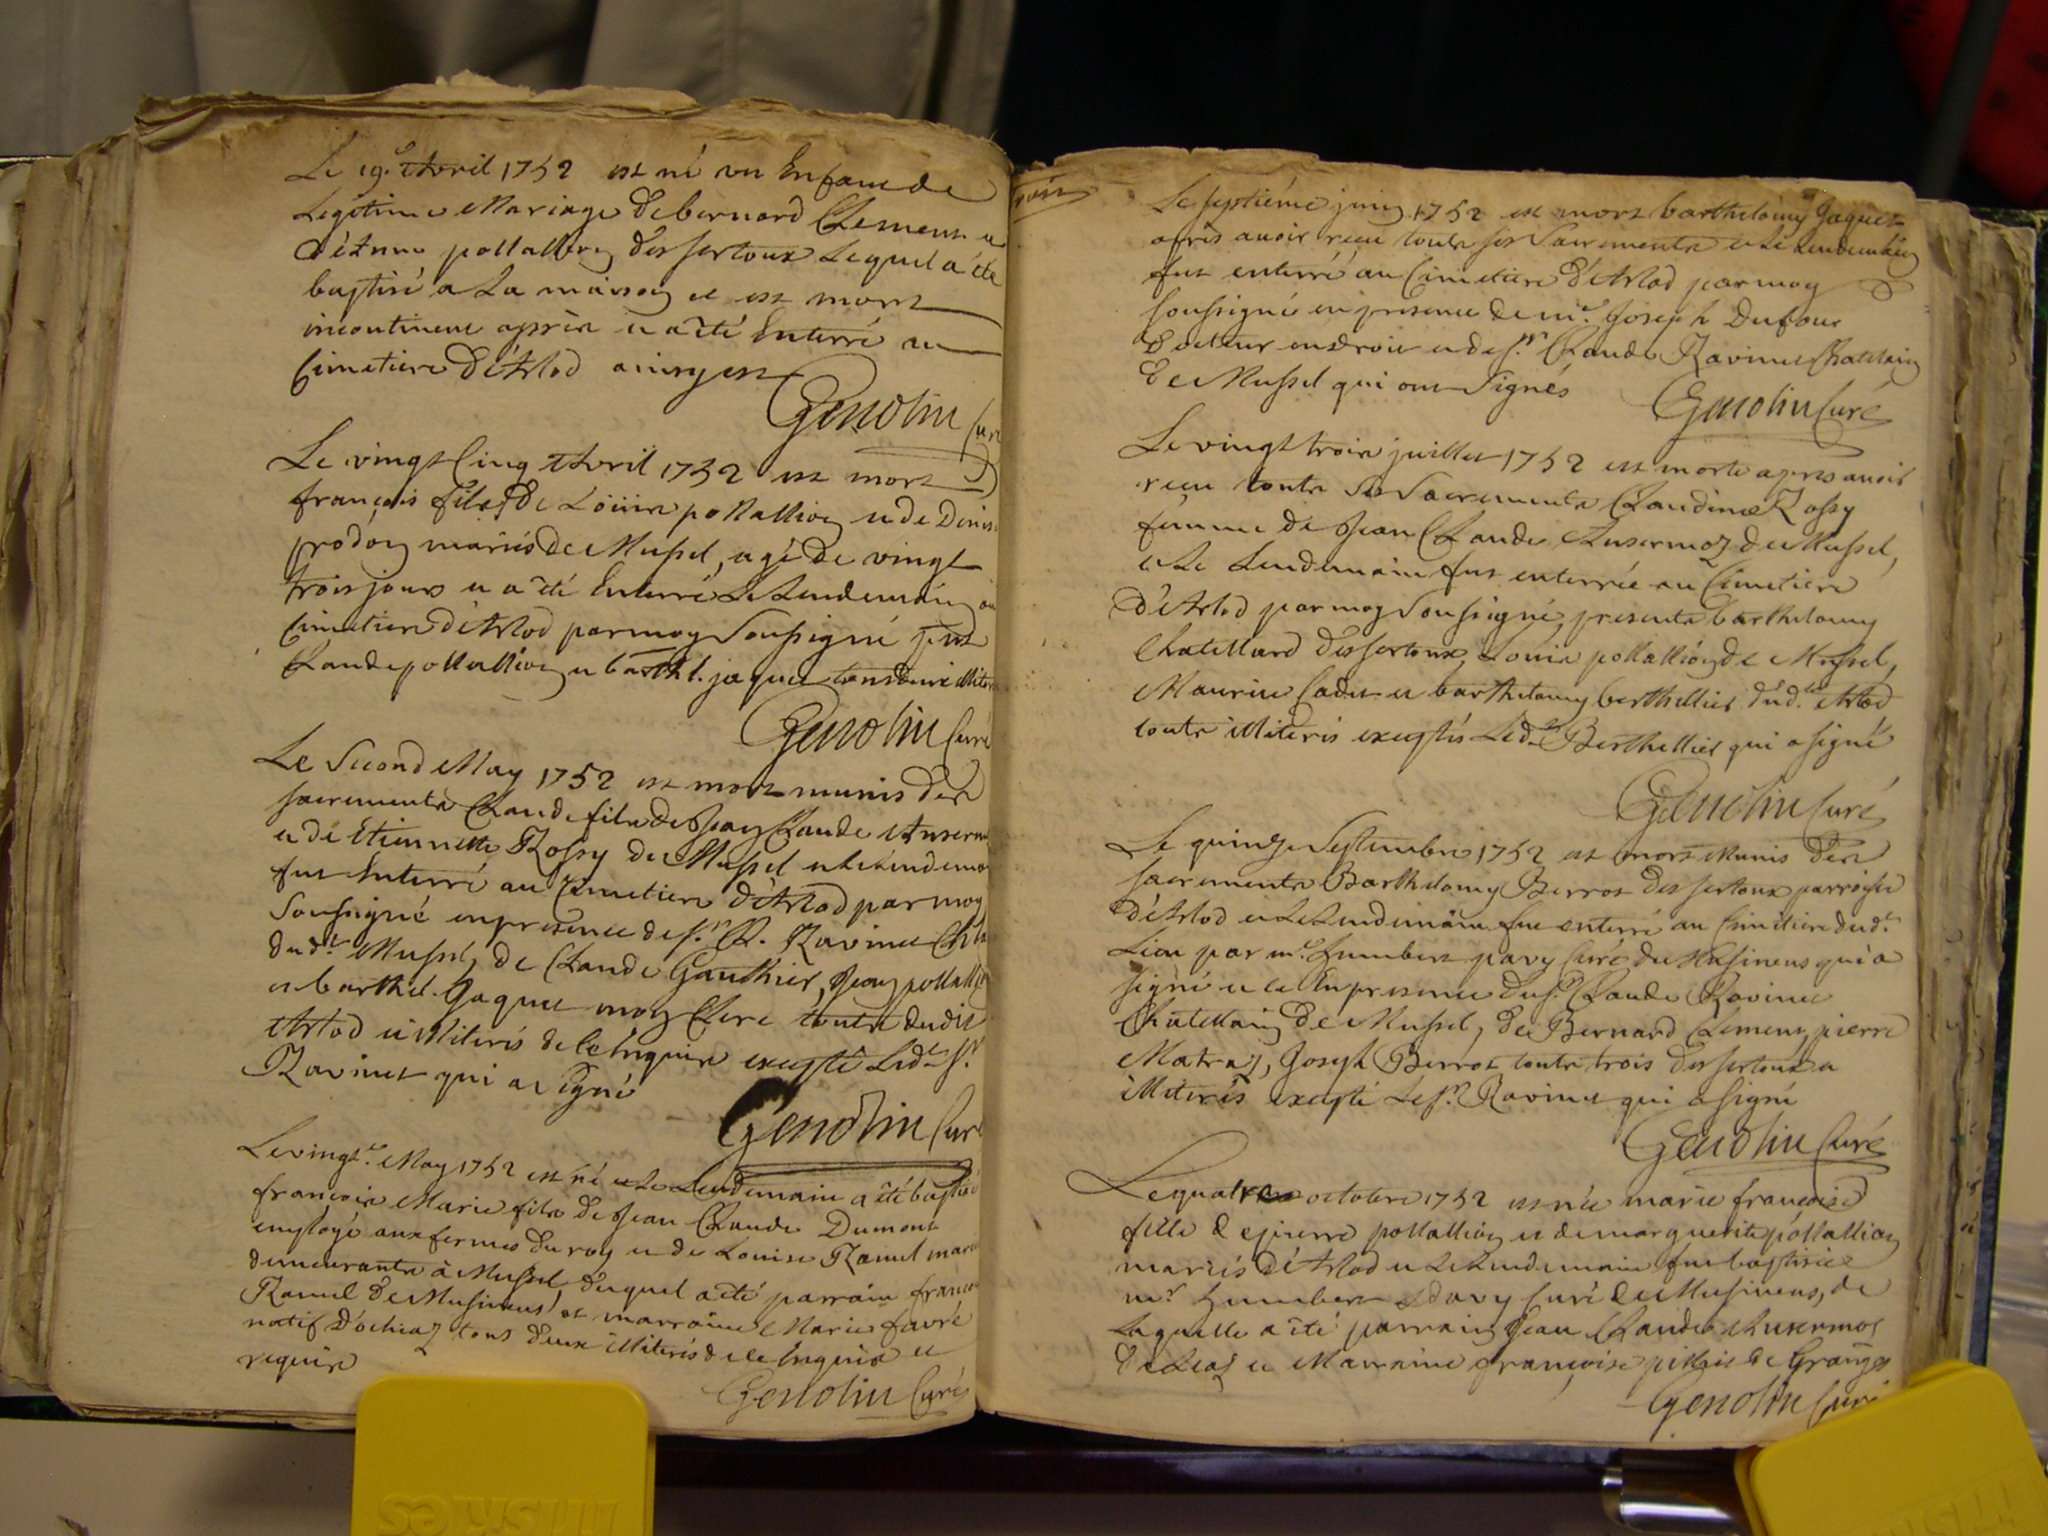 Le 19e Avril 1752 est né un Enfant de
Legitime Mariage de bernard Clement et
d'Anne pollallion des sertoux Lequel a été
baptisé a La maison et est mort
incontinent apprès et a été Enterré au
Cimetiere d'Arlod ainsy est
Genolin Curé
Le vingt Cinq Avril 1752 est mort
françois fils de Loüis pollallion et de Denise
prodon mariés de Mussel, agé de vingt
trois jours et a été Enterré Le Lendemain au
Cimetiere d'Arlod par moy Soussigné pnt
Claude pollallion et barthl. jaquet tous deux illiteres
Genolin Curé
Le Second May 1752 est mort munis des
sacrements Claude fils de Jean Claude Anserm
et de Etiennette Rossy de Mussel et le Lendemain
fut Enterré au Cimetiere d'Arlod par moy
Soussigné en presence de sr. Cl. Ravinet Ch
dudt. Mussel, de Claude Gauthier, Jean pollallion
et barthel. Jaquet mon Clerc touts dudit
Arlod illiterés de ce Enquis excepté Ledt. sr.
Ravinet qui a signé
Genolin Curé
Le vingte. May 1752 est né et Le Lendemain a été baptisé
françois Marie fils de Jean Claude Dumont
employé aux fermes du roy et de Louise Ramel mariés
demeurants à Mussel, duquel a été parrain françois
Ramel de Musinens et marraine Marie favre
natif d'ochiaz tous deux illiterés de ce Enquis et
requis
Genolin Curé
juin
Le septiéme juin 1752 est mort barthelemy Jaquet
après avoir reçu touts ses Sacrements et Le Lendemain
fut enterré au Cimetiere d'Arlod par moy
soussigné en presence de me. Joseph Dufour
Docteur en droit et de sr. Claude Ravinet Chatelain
de Mussel qui ont Signés
Genolin Curé
Le vingt trois juillet 1752 est morte apres avoir
reçu touts ses Sacrements Claudine Rossy
femme de Jean Claude Ansermoz de Mussel,
et Le Lendemain fut enterrée au Cimetiere
d'Arlod par moy Soussigné, presents barthelemy
Chatellard des sertoux, Louis pollallion de Mussel,
Maurice Cadet et barthelemy berthellier dudt. Arlod
touts illiterés exceptés Ledt. Berthellier qui a signé
Genolin Curé
Le quinze Septembre 1752 est mort Munis des
sacrements Barthelemy Berrot des sertoux parroisse
d'Arlod et Le Lendemain fut enterré au Cimetiere dudt.
Lieu par me. humbert pavy Curé de Musinens qui a
signé et ce En presence du sr. Claude Ravinet
Chatellain de Mussel, de Bernard Clement, pierre
Matraz, Joseph Berrot touts trois des sertoux
illiterés excepté Le sr. Ravinet qui a signé
Genolin Curé
Le quatre octobre 1752 est née marie françoise
fille de pierre pollallion et de marguerite pollallion
mariés d'Arlod et Le Lendemain fut baptisée
mr. humbert pavy Curé de Musinens, de
Laquelle a été parrain Jean Claude Ansermoz
de Leaz et Marraine françoise de Granges
Genolin Curé